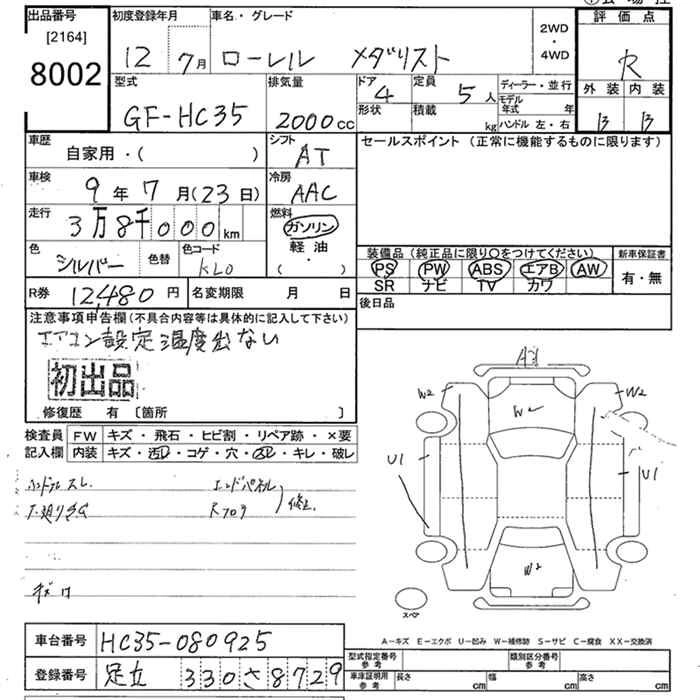 出品番号
[2164]
8002
初度登録年月
12 7月
車名・グレード
ローレル メダリスト
2WD
・
4WD
評価点
R
外装 内装
B B
型式
GF-HC35
排気量
2000cc
ドア
4
定員
5人
形状
積載
kg
ディーラー・並行
モデル年式 年
ハンドル 左・右
車歴
自家用・( )
シフト
AT
セールスポイント (正常に機能するものに限ります)
車検
9年7月(23日)
冷房
AAC
走行
3万8千000km
燃料
ガソリン
軽油
( ・ )
色
シルバー
色替
色コード
KL0
装備品 (純正品に限り○をつけてください)
PS PW ABS エアB AW
SR ナビ TV カワ
新車保証書
有・無
R券 12,480円
名変期限 月 日
後日品
注意事項申告欄(不具合内容等は具体的に記入して下さい)
エアコン設定温度出ない
初出品
修復歴 有 〔箇所 〕
検査員 FW キズ・飛石・ヒビ割・リペア跡・×要
記入欄 内装 キズ・汚レ・コゲ・穴・スレ・キレ・破レ
ハンドルスレ
エンドパネル
Rフロア
修正
W2
W2
W2
U1
U1
W2
スペア
A-キズ E-エクボ U-凹み W-補修跡 S-サビ C-腐食 XX-交換済
車台番号 HC35-080925
登録番号 足立 330さ8729
型式指定番号 参考
類別区分番号 参考
車庫証明用 参考
長さ cm 幅 cm 高さ cm